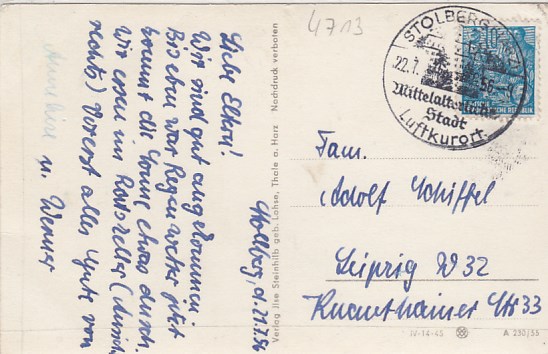 4713
STOLBERG (HARZ)
22.7.56
Mittelalterliche
Stadt
Luftkurort
Stolberg, d. 21.7.56
Liebe Eltern!
Wir sind gut angekommen
Bisher war Regenwetter jetzt
kommt die Sonne etwas durch.
Wir essen im Ratskeller (Ansicht
rechts) Vorerst alles Gute von
u. Werner
Annelies
Verlag Ilse Steinhilb geb. Lohse, Thale a. Harz Nachdruck verboten
Fam.
Adolf Schiffel
Leipzig W 32
Knauthainer Str 33
IV-14-45 A 230/55